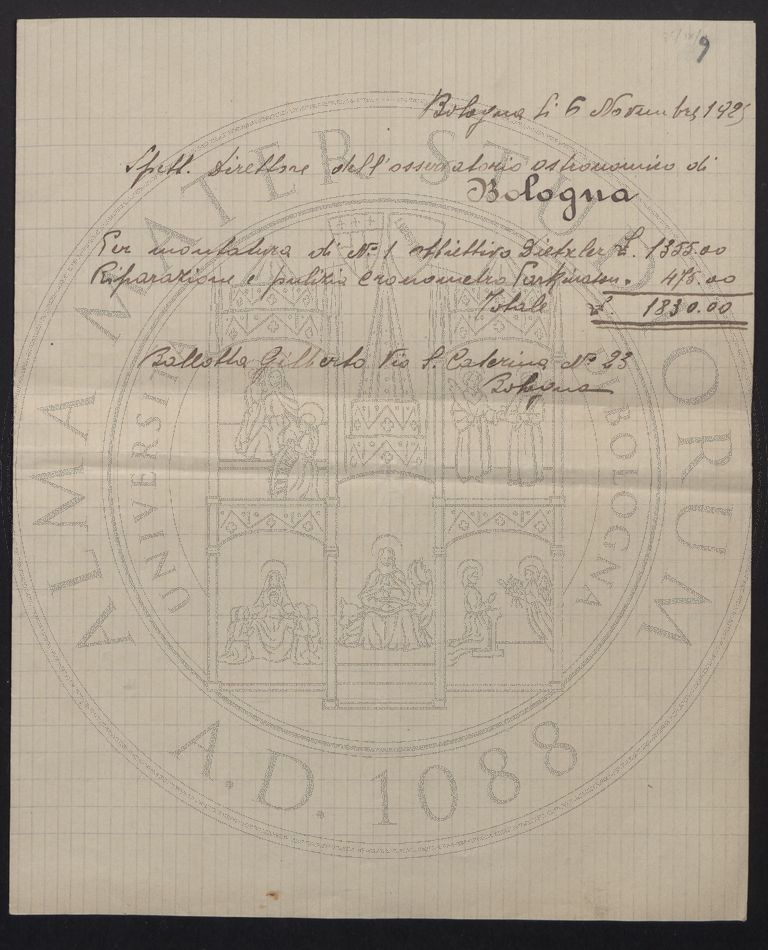 9
Bologna li 6 Novembre 1925
Spett. Direttore dell'osservatorio astronomico di
Bologna
Per montatura di N° 1 obiettivo Dietzler £. 1355.00
Riparazione e pulizia Cronometro Parkinson " 475.00
Totale £ 1830.00
Ballotta Gilberto Via S. Caterina N° 23
Bologna
ALMA MATER STUDIORUM
UNIVERSITÀ DI BOLOGNA
A.D. 1088